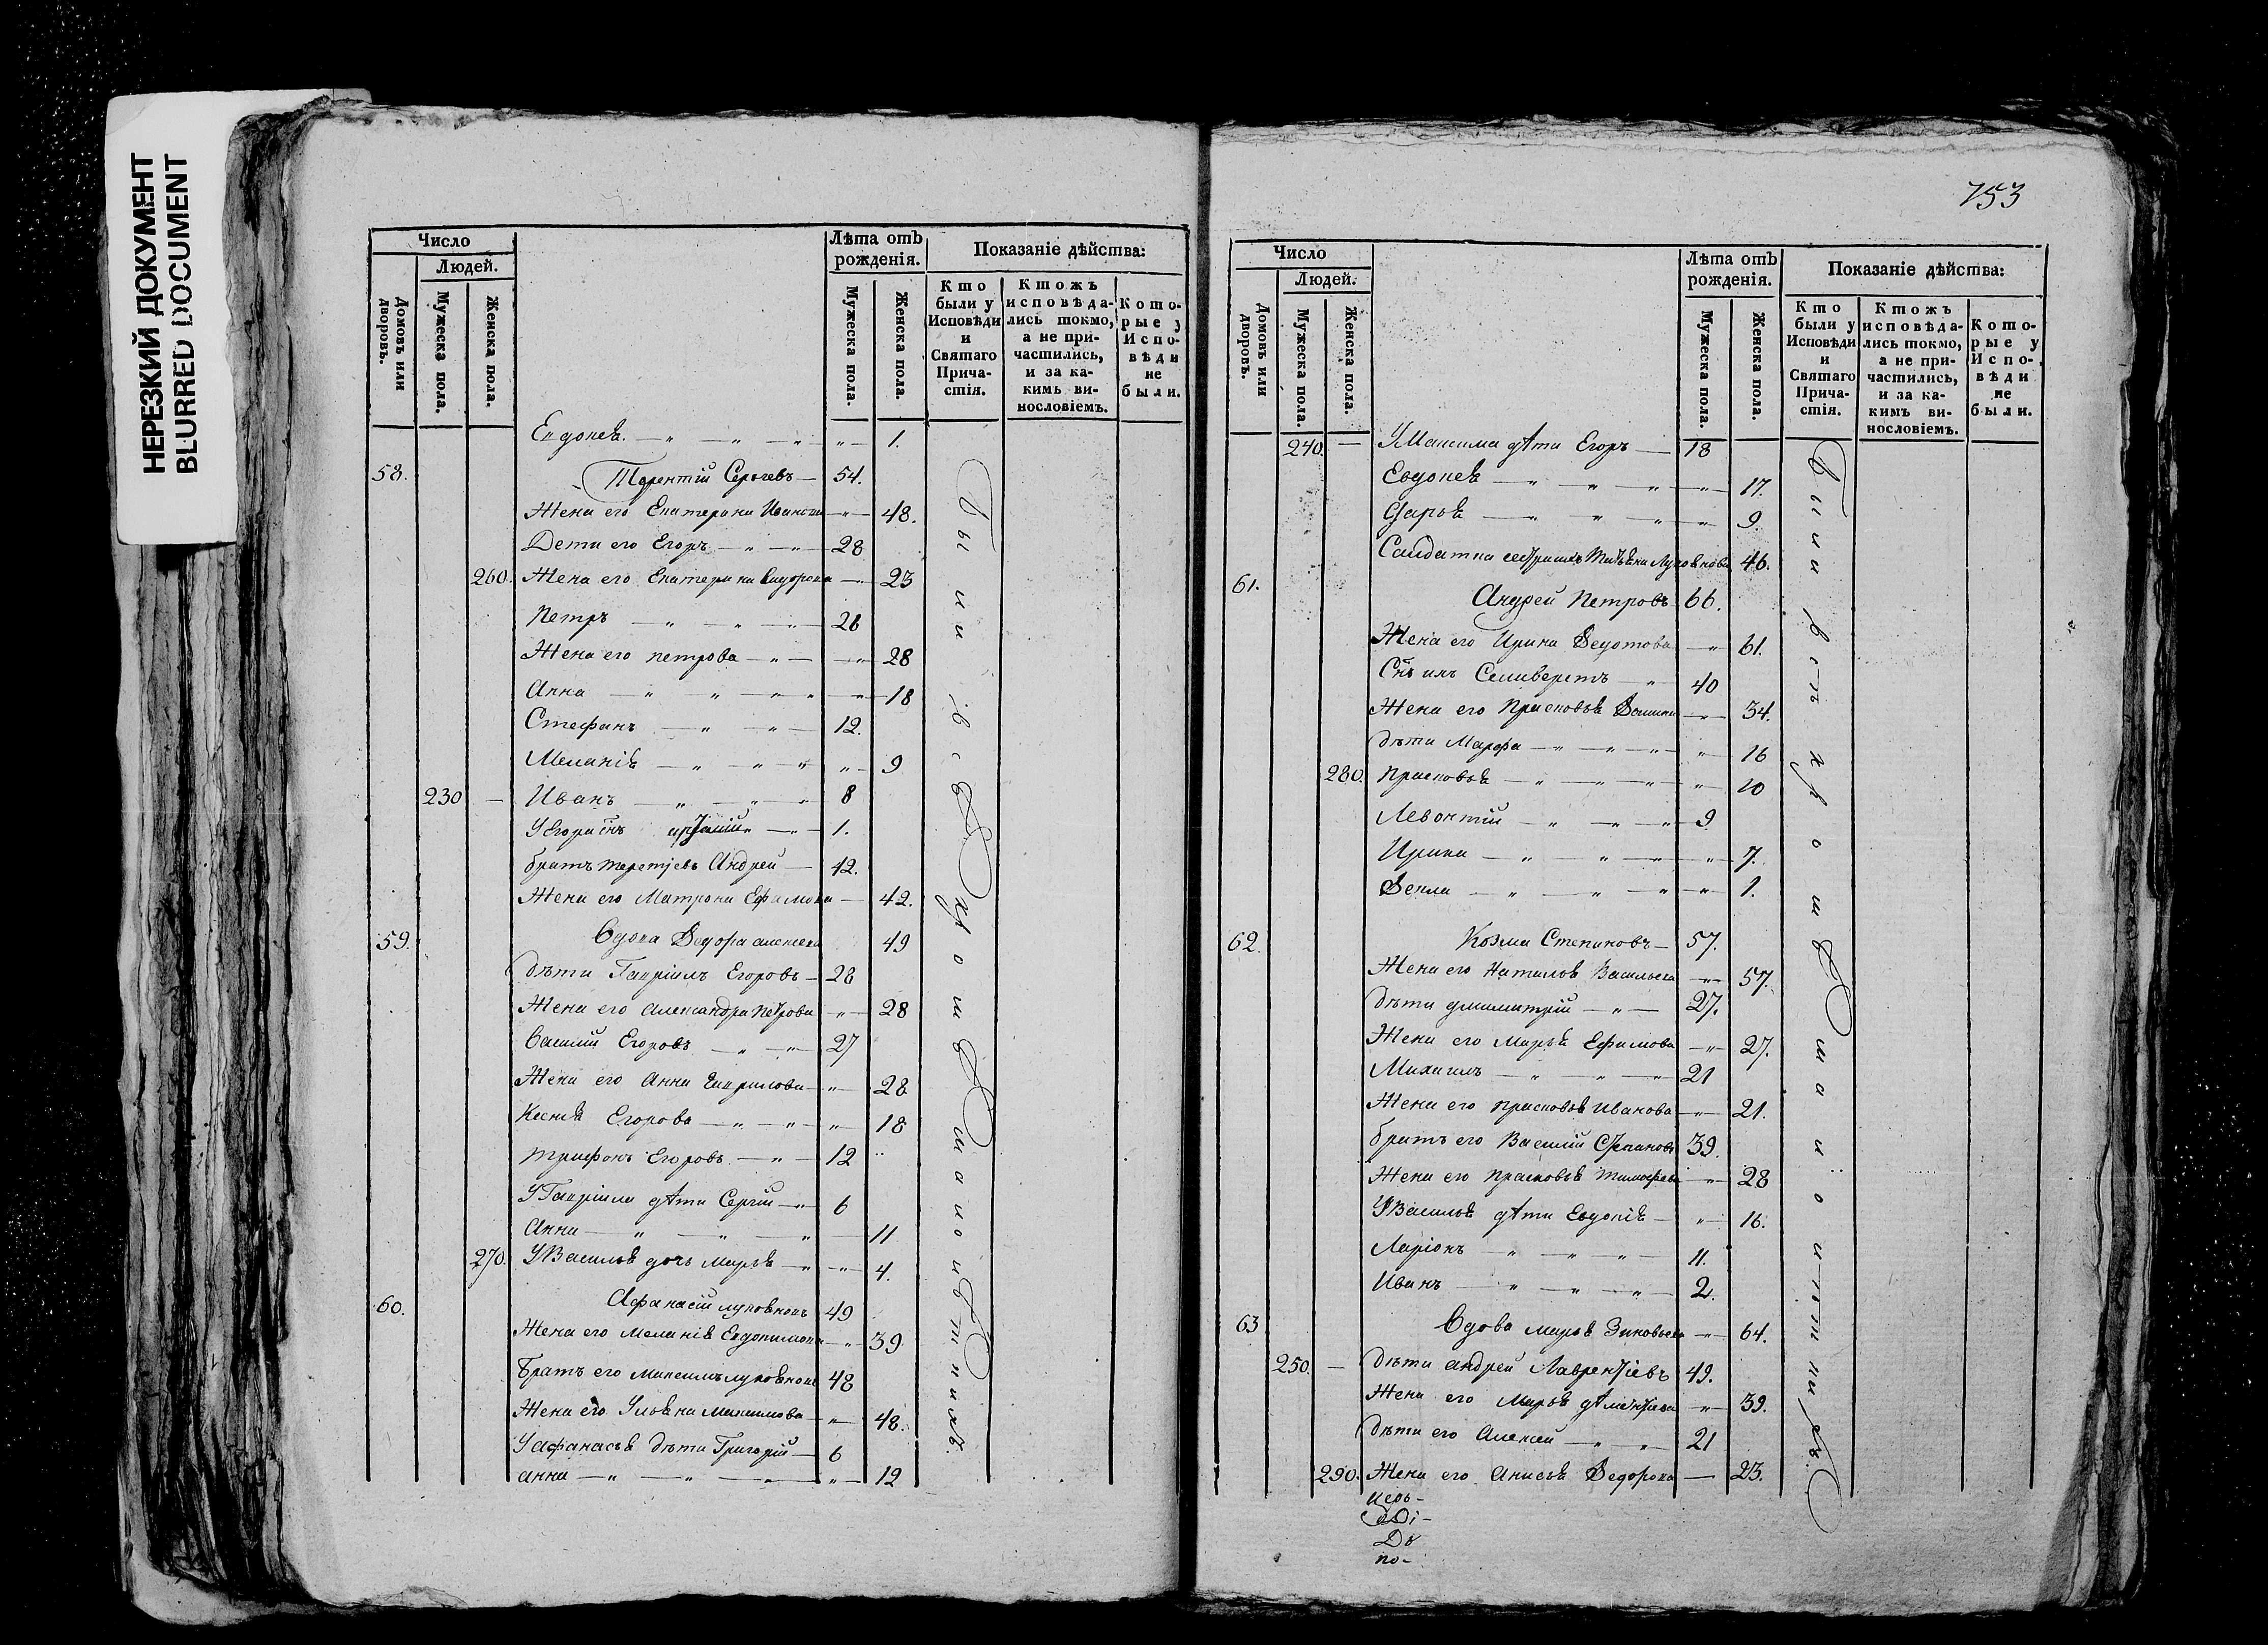 НЕРЕЗКИЙ ДОКУМЕНТ
BLURRED DOCUMENT
Число
Людей.
Домовъ или дворовъ.
Мужеска пола.
Женска пола.
Лѣта отъ рожденія.
Мужеска пола.
Женска пола.
Показаніе дѣйства:
Кто были у Исповѣди и Святаго Прича-стія.
Ктожъ исповѣда-лись токмо, а не при-частились, и за ка-кимъ ви-нословіемъ.
Кото-рые у Испо-вѣди не были.
Евдокеѣ. — " — " — " " 1.
58. Терентій Сергѣевъ — 54.
Жена его Екатерина Иванова — " — 48.
Дети его Егоръ — " — " — 28
260. Жена его Екатерина Сидорова — 23
Петръ — " — " — " — 26
Жена его петрова — " — " — 28
Анна — " — " — " " " — 18
Стефанъ — " — " — 12.
Меланіѣ — " — " — " " — 9
230 — Иванъ — " — " — " 8
У Егора снъ — " — 1.
братъ терентіевъ Андрей — 42.
Жена его Матрона Ефимова — 42.
59. Вдова Ѳедора алексеева 49
дѣти Гавріилъ Егоровъ — 28
Жена его Александра Петрова " — 28
Василій Егоровъ — " — " — 27
Жена его Анна Гаврилова — " — 28
Ксеніѣ Егорова — " — " — " — 18
трифонъ Егоровъ — " — 12
У Гавріила дѣти Сергій — " 6
Анна — " — " — " — 11
270. У Василья дочь марьѣ — " " — 4.
60. Афанасій лукояновъ 49
Жена его меланіѣ Евдокимова — " 39
Братъ его максимъ лукояновъ 48
Жена его Ульяна Максимова — " — 48.
У афанасьѣ дѣти Григорій — 6
анна — " — " — " — " — 12
Были .в с ѣ хр о ш ѣ ш а н о и ѣ т н и х ъ.
753
Число
Людей.
Домовъ или дворовъ.
Мужеска пола.
Женска пола.
Лѣта отъ рожденія.
Мужеска пола.
Женска пола.
Показаніе дѣйства:
Кто были у Исповѣди и Святаго Прича-стія.
Ктожъ исповѣда-лись токмо, а не при-частились, и за ка-кимъ ви-нословіемъ.
Кото-рые у Испо-вѣди не были.
240. — У Максима дѣти Егоръ — 18
Евдокеѣ — " " " " — 17.
Дарьѣ — " " " " — 9.
Салдатка Татьяна Лукоянова 46.
61. Андрей Петровъ 66.
Жена его Ирина Ѳедотова — " 61.
Снъ ихъ Селиверстъ — " 40
Жена его Прасковьѣ — " — 34.
дѣти Марфа — " — " — " " — 16
280. Прасковьѣ — " — " — " " — 10
Левонтій — " — " — " 9.
Ирина — " " — " " — 7.
Ѳекла — " — " — " " — 1.
62. Козма Степановъ — 57.
Жена его Наталья Васильева — " — 57.
дѣти дмимитрій — " — 27.
Жена его Марьѣ Ефимова — " — 27.
Михаилъ — " — " — " 21
Жена его прасковьѣ Иванова — " — 21.
братъ его Василій Степановъ 39.
Жена его прасковьѣ тимофева — " — 28
У Васильѣ дѣти Евдокіѣ — " — 16.
Ларіонъ — " — " — " 11.
Иванъ — " — " — " 2.
63 Вдова марьѣ Зиновьева — " 64.
250. — дѣти андрей Лаврентіевъ 49.
Жена его Марьѣ — " 39.
дѣти его Алексей — " " — 21
290. Жена его Анисьѣ Ѳедорова — 23.